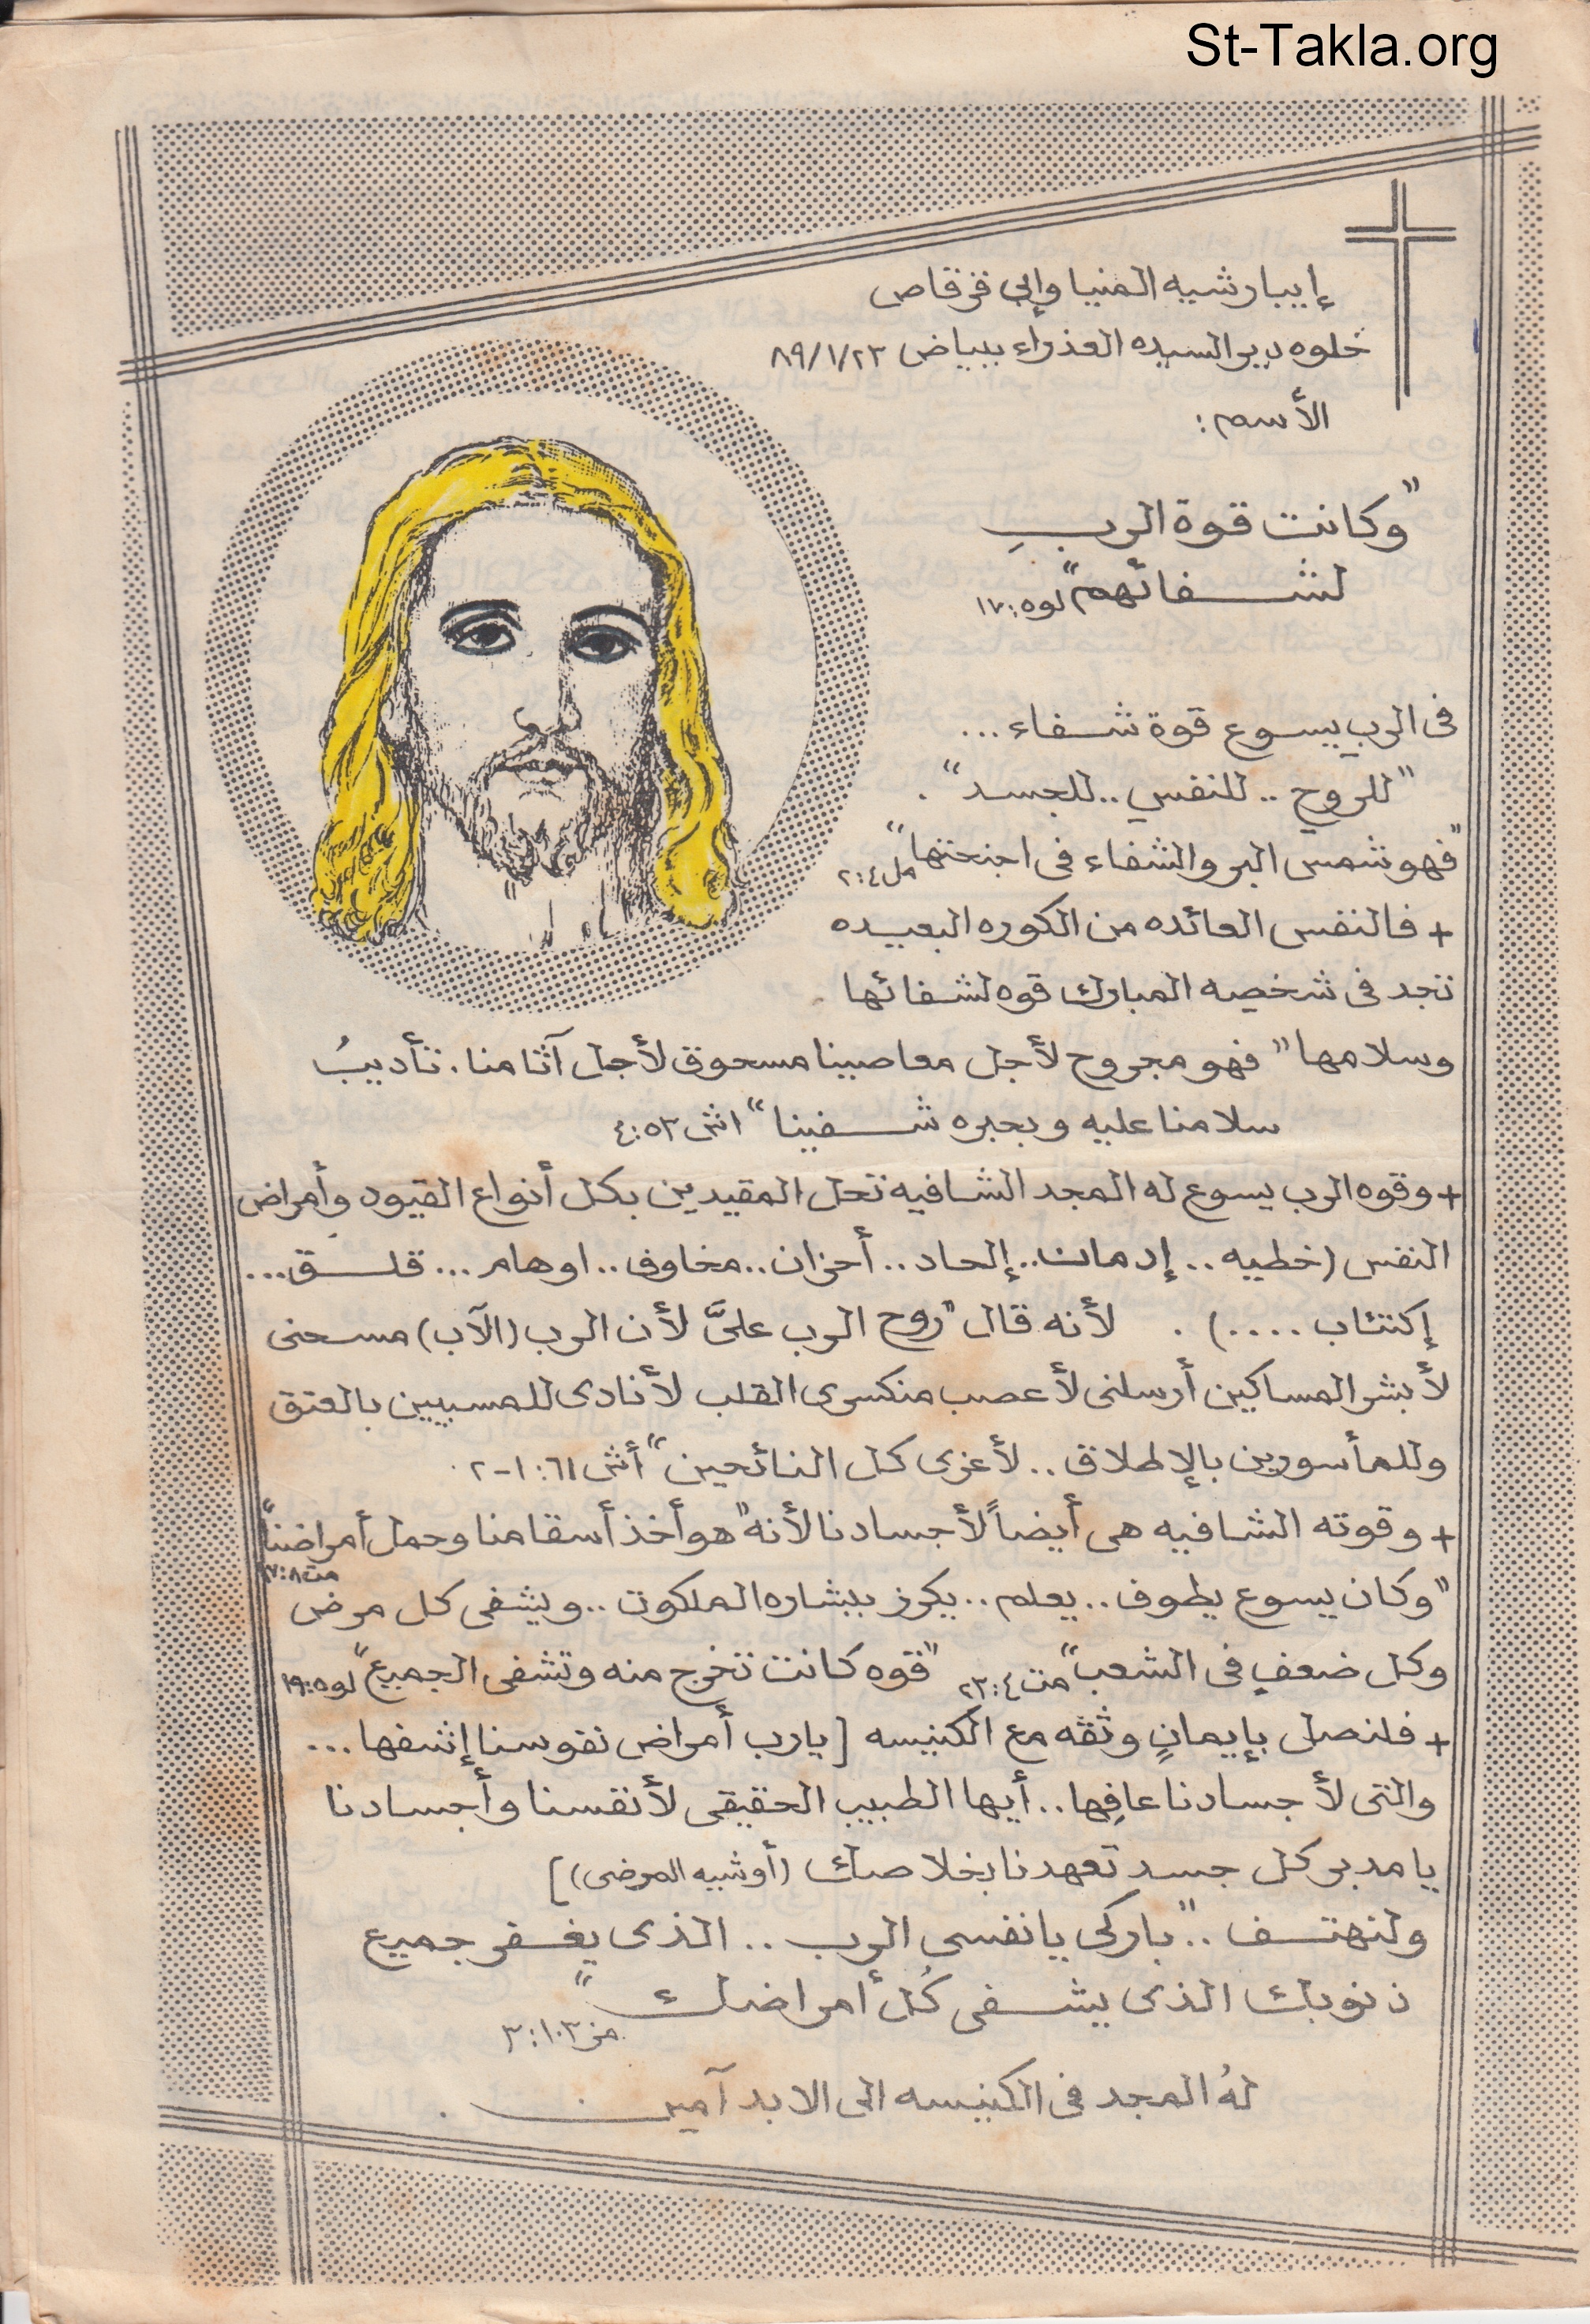 St-Takla.org
إيبارشيه المنيا وإبي قرقاص
خلوه دير السيده العذراء ببياض ٨٩/١/٢٣
الأسم :
"وكانت قوة الربِ
لشفائهم" لو٥: ١٧
فى الرب يسوع قوة شفاء ...
"للروح .. للنفس .. للجسد" .
"فهو شمس البر والشفاء فى اجنحتها" مل٤: ٢
+ فالنفس العائده من الكوره البعيده
تجد فى شخصه المبارك قوه لشفائها
وسلامها "فهو مجروح لأجل معاصينا مسحوق لأجل آثامنا . تأديبُ
سلامنا عليه وبحبره شفينا" اش ٥٣: ٤
+ وقوه الرب يسوع له المجد الشافيه تحل المقيدين بكل أنواع القيود وأمراض
النفس (خطيه .. إدمان .. إلحاد .. أحزان .. مخاوف .. اوهام ... قلق ...
إكتئاب ....) . لأنه قال "روح الرب علىَّ لأن الرب (الآب) مسحنى
لأبشر المساكين أرسلنى لأعصب منكسرى القلب لأنادى للمسبيين بالعتق
وللمأسورين بالإطلاق .. لأعزى كل النائحين" أش ٦١: ١-٢ .
+ وقوته الشافيه هى أيضاً لأجسادنا لأنه "هو أخذ أسقامنا وحمل أمراضنا"
مت ٨: ١٧
"وكان يسوع يطوف .. يعلم .. يكرز ببشاره الملكوت .. ويشفى كل مرض
وكل ضعفٍ فى الشعب" مت ٤: ٢٣ "قوه كانت تخرج منه وتشفى الجميع" لو٥: ١٩
+ فلنصل بإيمانٍ وثقه مع الكنيسه [يارب أمراض نفوسنا إشفها ...
والتى لأجسادنا عافِها .. أيها الطبيب الحقيقى لأنفسنا وأجسادنا
يا مدبر كل جسد تعهدنا بخلاصك (أوشيه المرضى)]
ولنهتف .. "باركى يا نفسى الرب .. الذى يغفر جميع
ذنوبك الذى يشفى كُل أمراضك"
مز ١٠٣: ٣
لهُ المجد فى الكنيسه الى الابد آمين .